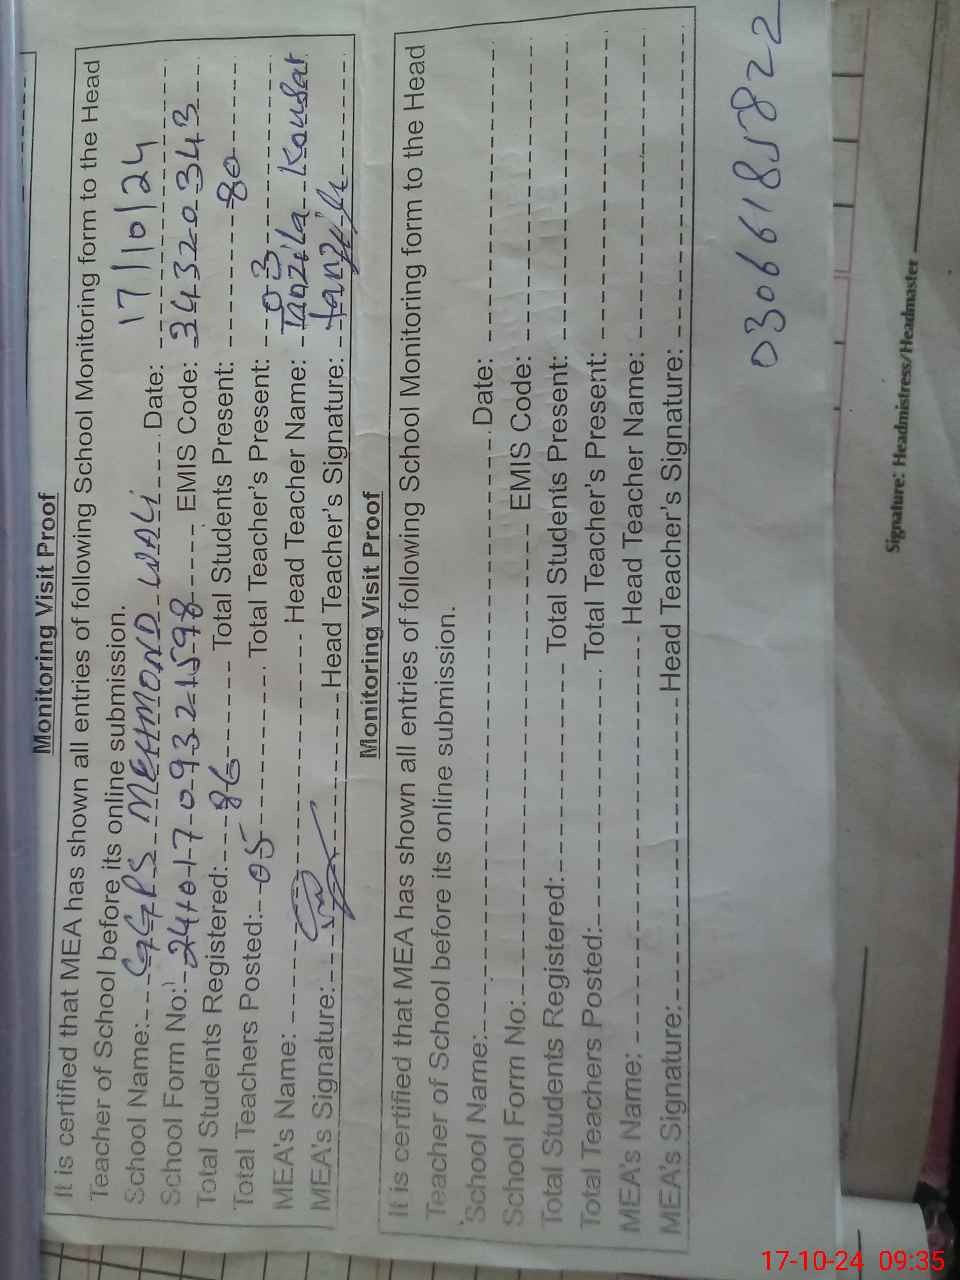 Monitoring Visit Proof
It is certified that MEA has shown all entries of following School Monitoring form to the Head
Teacher of School before its online submission.
School Name: GGPS MEHMOND WALI Date: 17/10/24
School Form No: 241017-0932-1598 EMIS Code: 34320343
Total Students Registered: 86 Total Students Present: 80
Total Teachers Posted: 05 Total Teacher's Present: 03
MEA's Name: Head Teacher Name: Tanzila Kousar
MEA's Signature: Head Teacher's Signature: Tanzila
Monitoring Visit Proof
It is certified that MEA has shown all entries of following School Monitoring form to the Head
Teacher of School before its online submission.
School Name: Date:
School Form No: EMIS Code:
Total Students Registered: Total Students Present:
Total Teachers Posted: Total Teacher's Present:
MEA's Name: Head Teacher Name:
MEA's Signature: Head Teacher's Signature:
03066185822
Signature: Headmistress/Headmaster
17-10-24 09:35